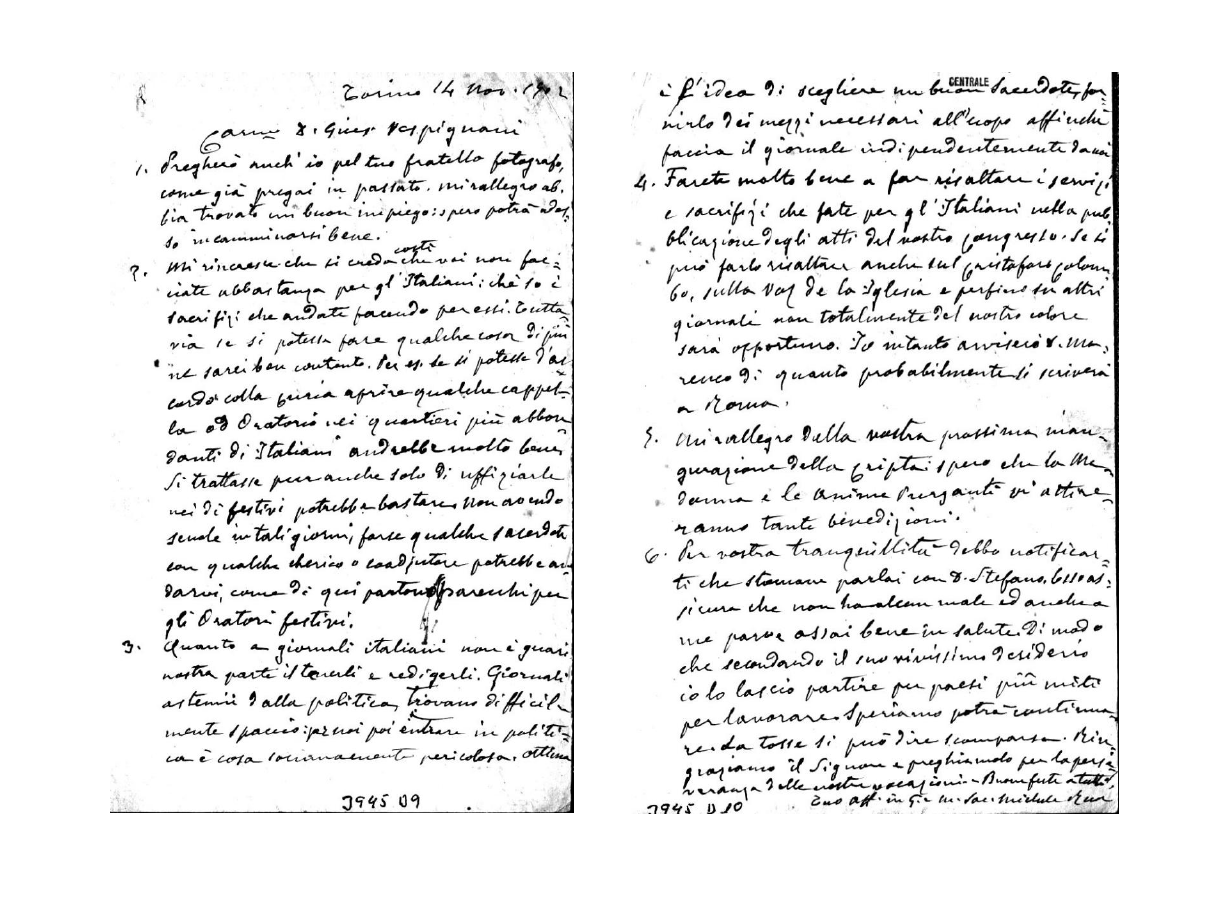 Torino 14 Nov. 1902
Carmo D. Gius. Vespignani
1. Pregherò anch'io pel tuo fratello fotografo,
come già pregai in passato. Mi rallegro ab,
bia trovato un buon impiego: spero potrà ades,
so incamminarsi bene.
2. Mi rincresce che si creda costì che voi non fac=
ciate abbastanza per gl'Italiani: chè so i
sacrifizi che andate facendo per essi. Tutta
via se si potesse fare qualche cosa di più
ne sarei ben contento. Per es. se si potesse d'ac
cordo colla curia aprire qualche cappel=
la od Oratorio nei quartieri più abbon
danti di Italiani andrebbe molto bene.
Si trattasse pur anche solo di uffiziarle
nei dì festivi potrebbe bastare. Non avendo
scuole in tali giorni, forse qualche sacerdote
con qualche chierico o coadiutore potrebbe an
darvi, come di qui partono parecchi per
gli Oratori festivi.
3. Quanto a giornali italiani non è quasi
nostra parte il tenerli e redigerli. Giornali
astemii dalla politica, trovano difficil=
mente spaccio: per noi poi entrare in politi=
ca è cosa sommamente pericolosa. Ottima
J945 D9
CENTRALE
è l'idea di scegliere un buon Sacerdote, for=
nirlo dei mezzi necessari all'uopo affinchè
faccia il giornale indipendentemente da noi
4. Farete molto bene a far risaltare i servizi
e sacrifizi che fate per gl'Italiani nella pub
blicazione degli atti del vostro congresso. Se si
può farlo risaltare anche sul Cristoforo Colom
bo, sulla Voz de la Iglesia e perfino su altri
giornali non totalmente del nostro colore
sarà opportuno. Io intanto avviserò D. Ma=
renco di quanto probabilmente si scriverà
a Roma.
5. Mi rallegro della vostra prossima inau=
gurazione della cripta: spero che la Ma=
donna e le anime Purganti vi attire=
ranno tante benedizioni.
6. Per vostra tranquillità debbo notificar=
ti che stamane parlai con D. Stefano. Esso as=
sicura che non ha alcun male ed anche a
me parve assai bene in salute. Di modo
che secondando il suo vivissimo desiderio
io lo lascio partire per paesi più miti
per lavorare. Speriamo potrà continua
re. La tosse si può dire scomparsa. Rin=
graziamo il Signore e preghiamolo per la perse=
veranza delle nostre vocazioni. Buone feste a tutti,
Tuo aff. in G. e M. Sac. Michele Rua
J945 D 10